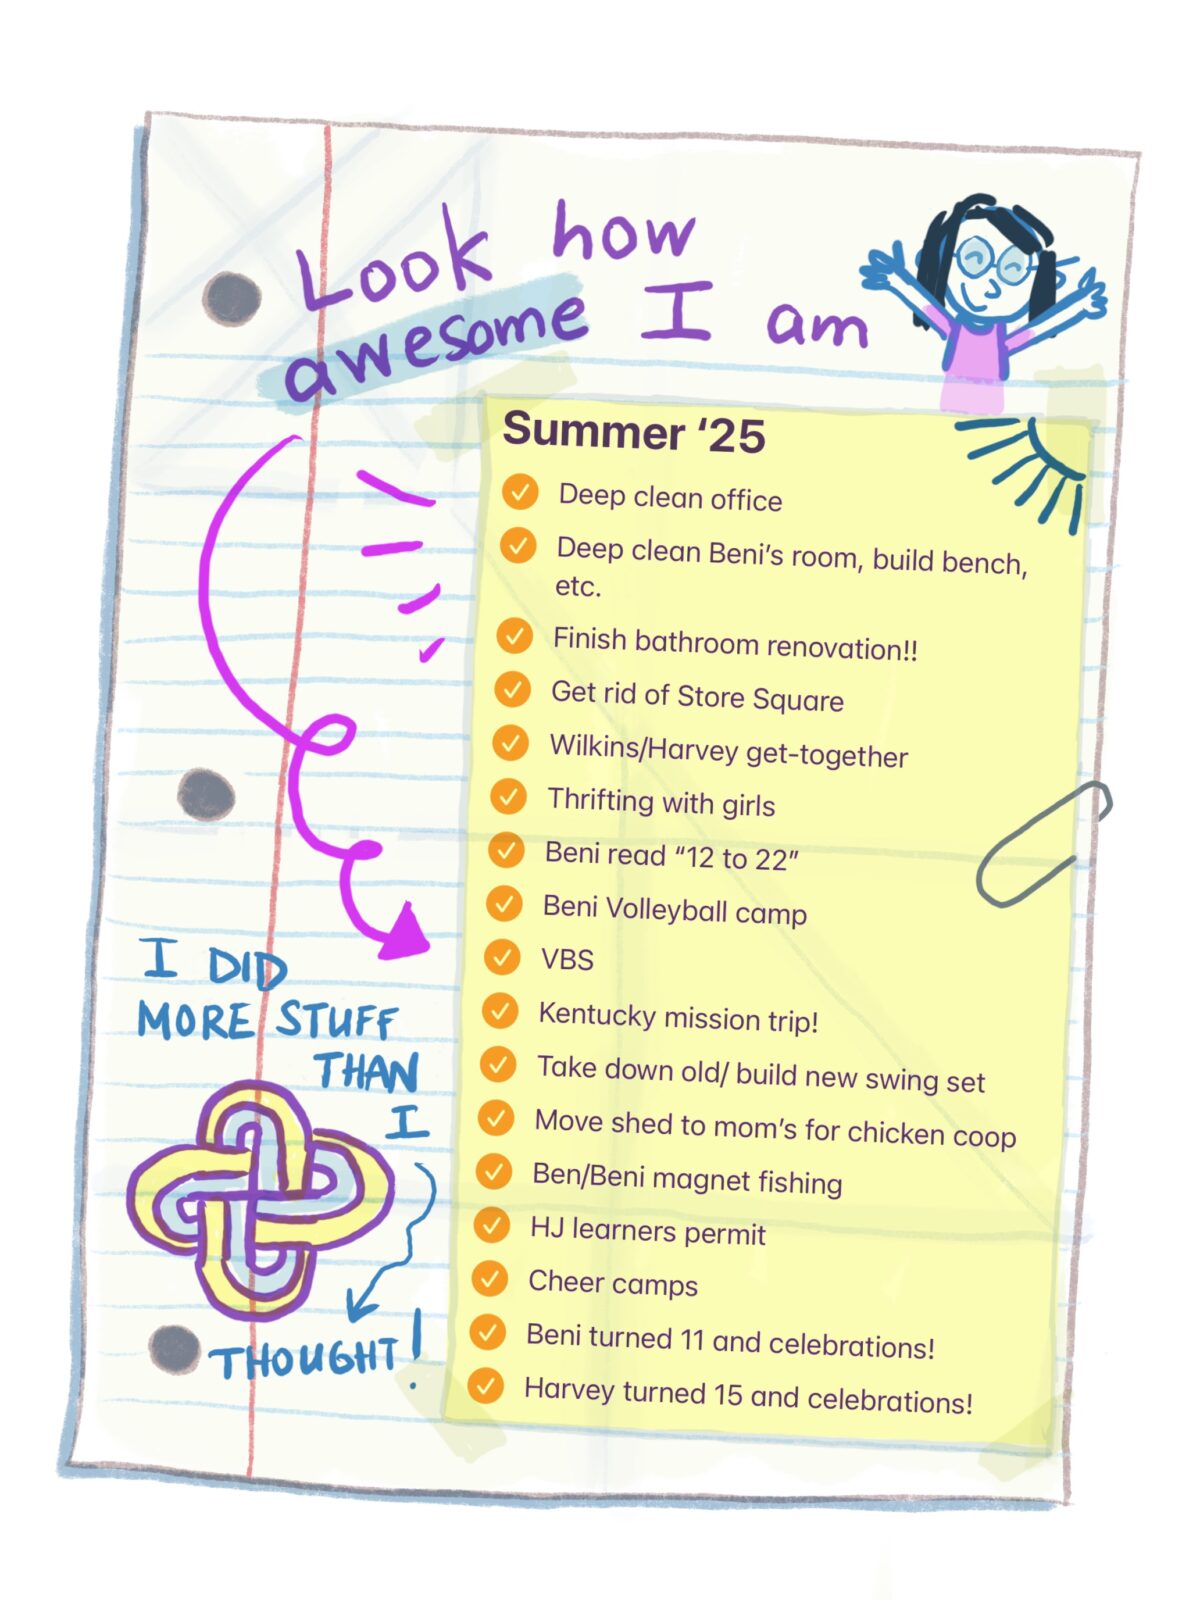 Look how
awesome I am
Summer ‘25
Deep clean office
Deep clean Beni’s room, build bench,
etc.
Finish bathroom renovation!!
Get rid of Store Square
Wilkins/Harvey get-together
Thrifting with girls
Beni read “12 to 22”
Beni Volleyball camp
VBS
Kentucky mission trip!
Take down old/ build new swing set
Move shed to mom’s for chicken coop
Ben/Beni magnet fishing
HJ learners permit
Cheer camps
Beni turned 11 and celebrations!
Harvey turned 15 and celebrations!
I DID
MORE STUFF
THAN
I
THOUGHT!